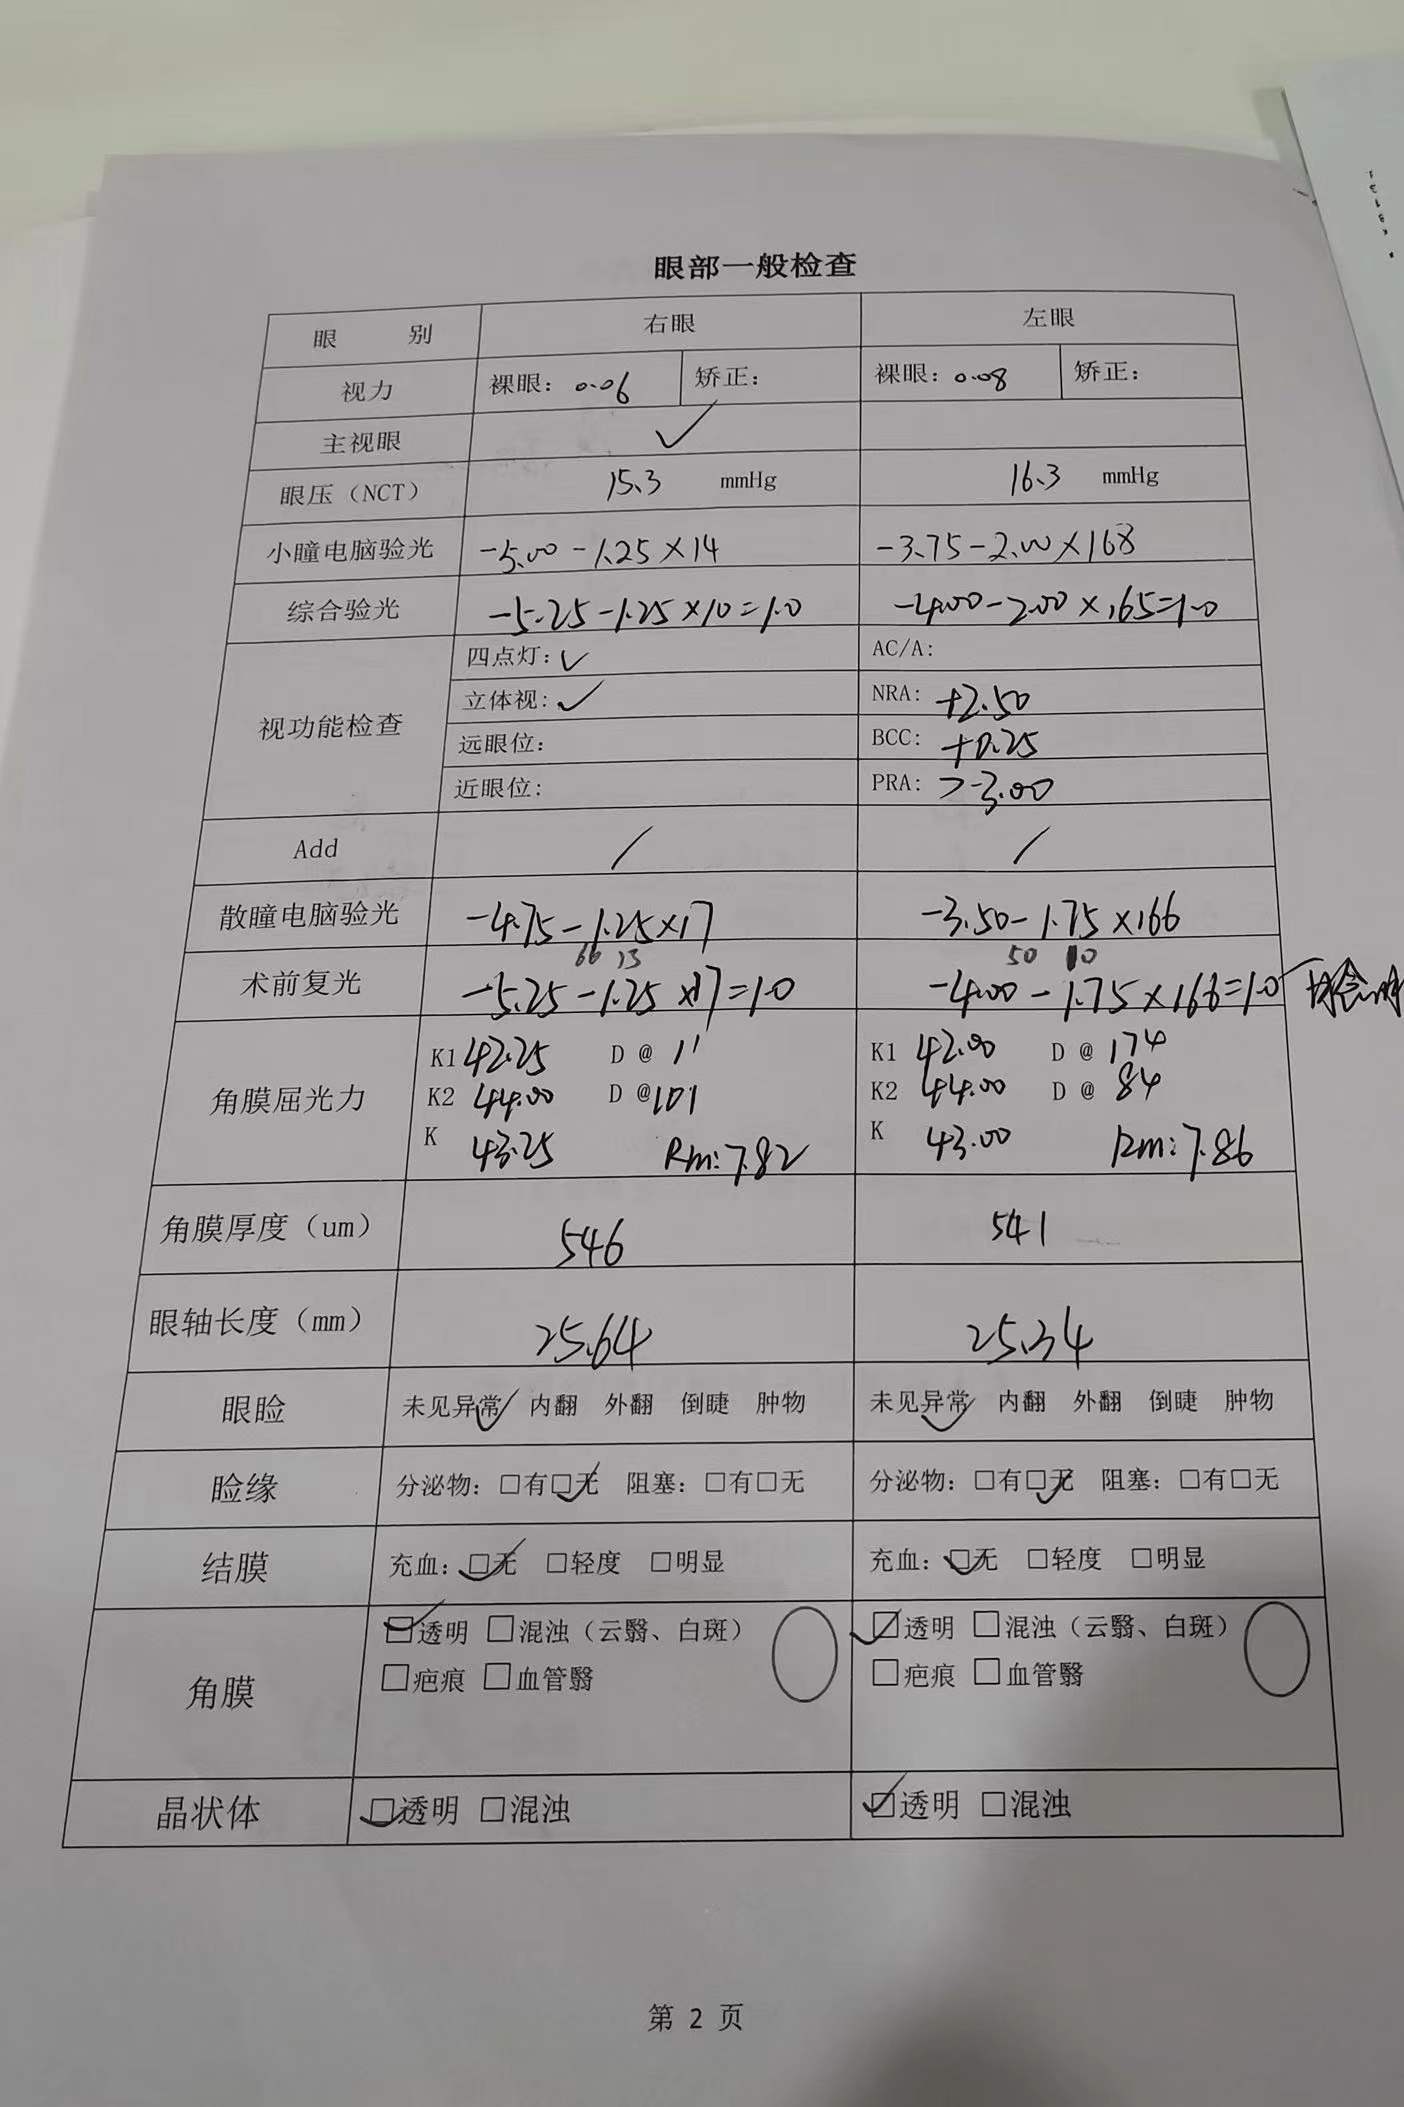 眼部一般检查
眼 别 右眼 左眼
视力 裸眼：0.06 矫正： 裸眼：0.08 矫正：
主视眼 ✓
眼压（NCT） 15.3 mmHg 16.3 mmHg
小瞳电脑验光 -5.00 -1.25×14 -3.75-2.00×168
综合验光 -5.25-1.25×10=1.0 -4.00-2.00×165=1.0
视功能检查
四点灯：✓ AC/A:
立体视：✓ NRA: +2.50
远眼位： BCC: +0.25
近眼位： PRA: >-3.00
Add / /
散瞳电脑验光 -4.75-1.25×17 -3.50-1.75×166
66 13 50 10
术前复光 -5.25-1.25×17=1.0 -4.00-1.75×166=1.0
角膜屈光力
K1 42.25 D @ 11 K1 42.00 D @ 174
K2 44.00 D @ 101 K2 44.00 D @ 84
K 43.25 Rm:7.82 K 43.00 Rm:7.86
角膜厚度（um） 546 541
眼轴长度（mm） 25.64 25.34
眼睑 未见异常✓ 内翻 外翻 倒睫 肿物 未见异常✓ 内翻 外翻 倒睫 肿物
睑缘 分泌物：□有☑无 阻塞：□有□无 分泌物：□有☑无 阻塞：□有□无
结膜 充血：☑无 □轻度 □明显 充血：☑无 □轻度 □明显
角膜
☑透明 □混浊（云翳、白斑） ☑透明 □混浊（云翳、白斑）
□疤痕 □血管翳 □疤痕 □血管翳
晶状体 ☑透明 □混浊 ☑透明 □混浊
第 2 页